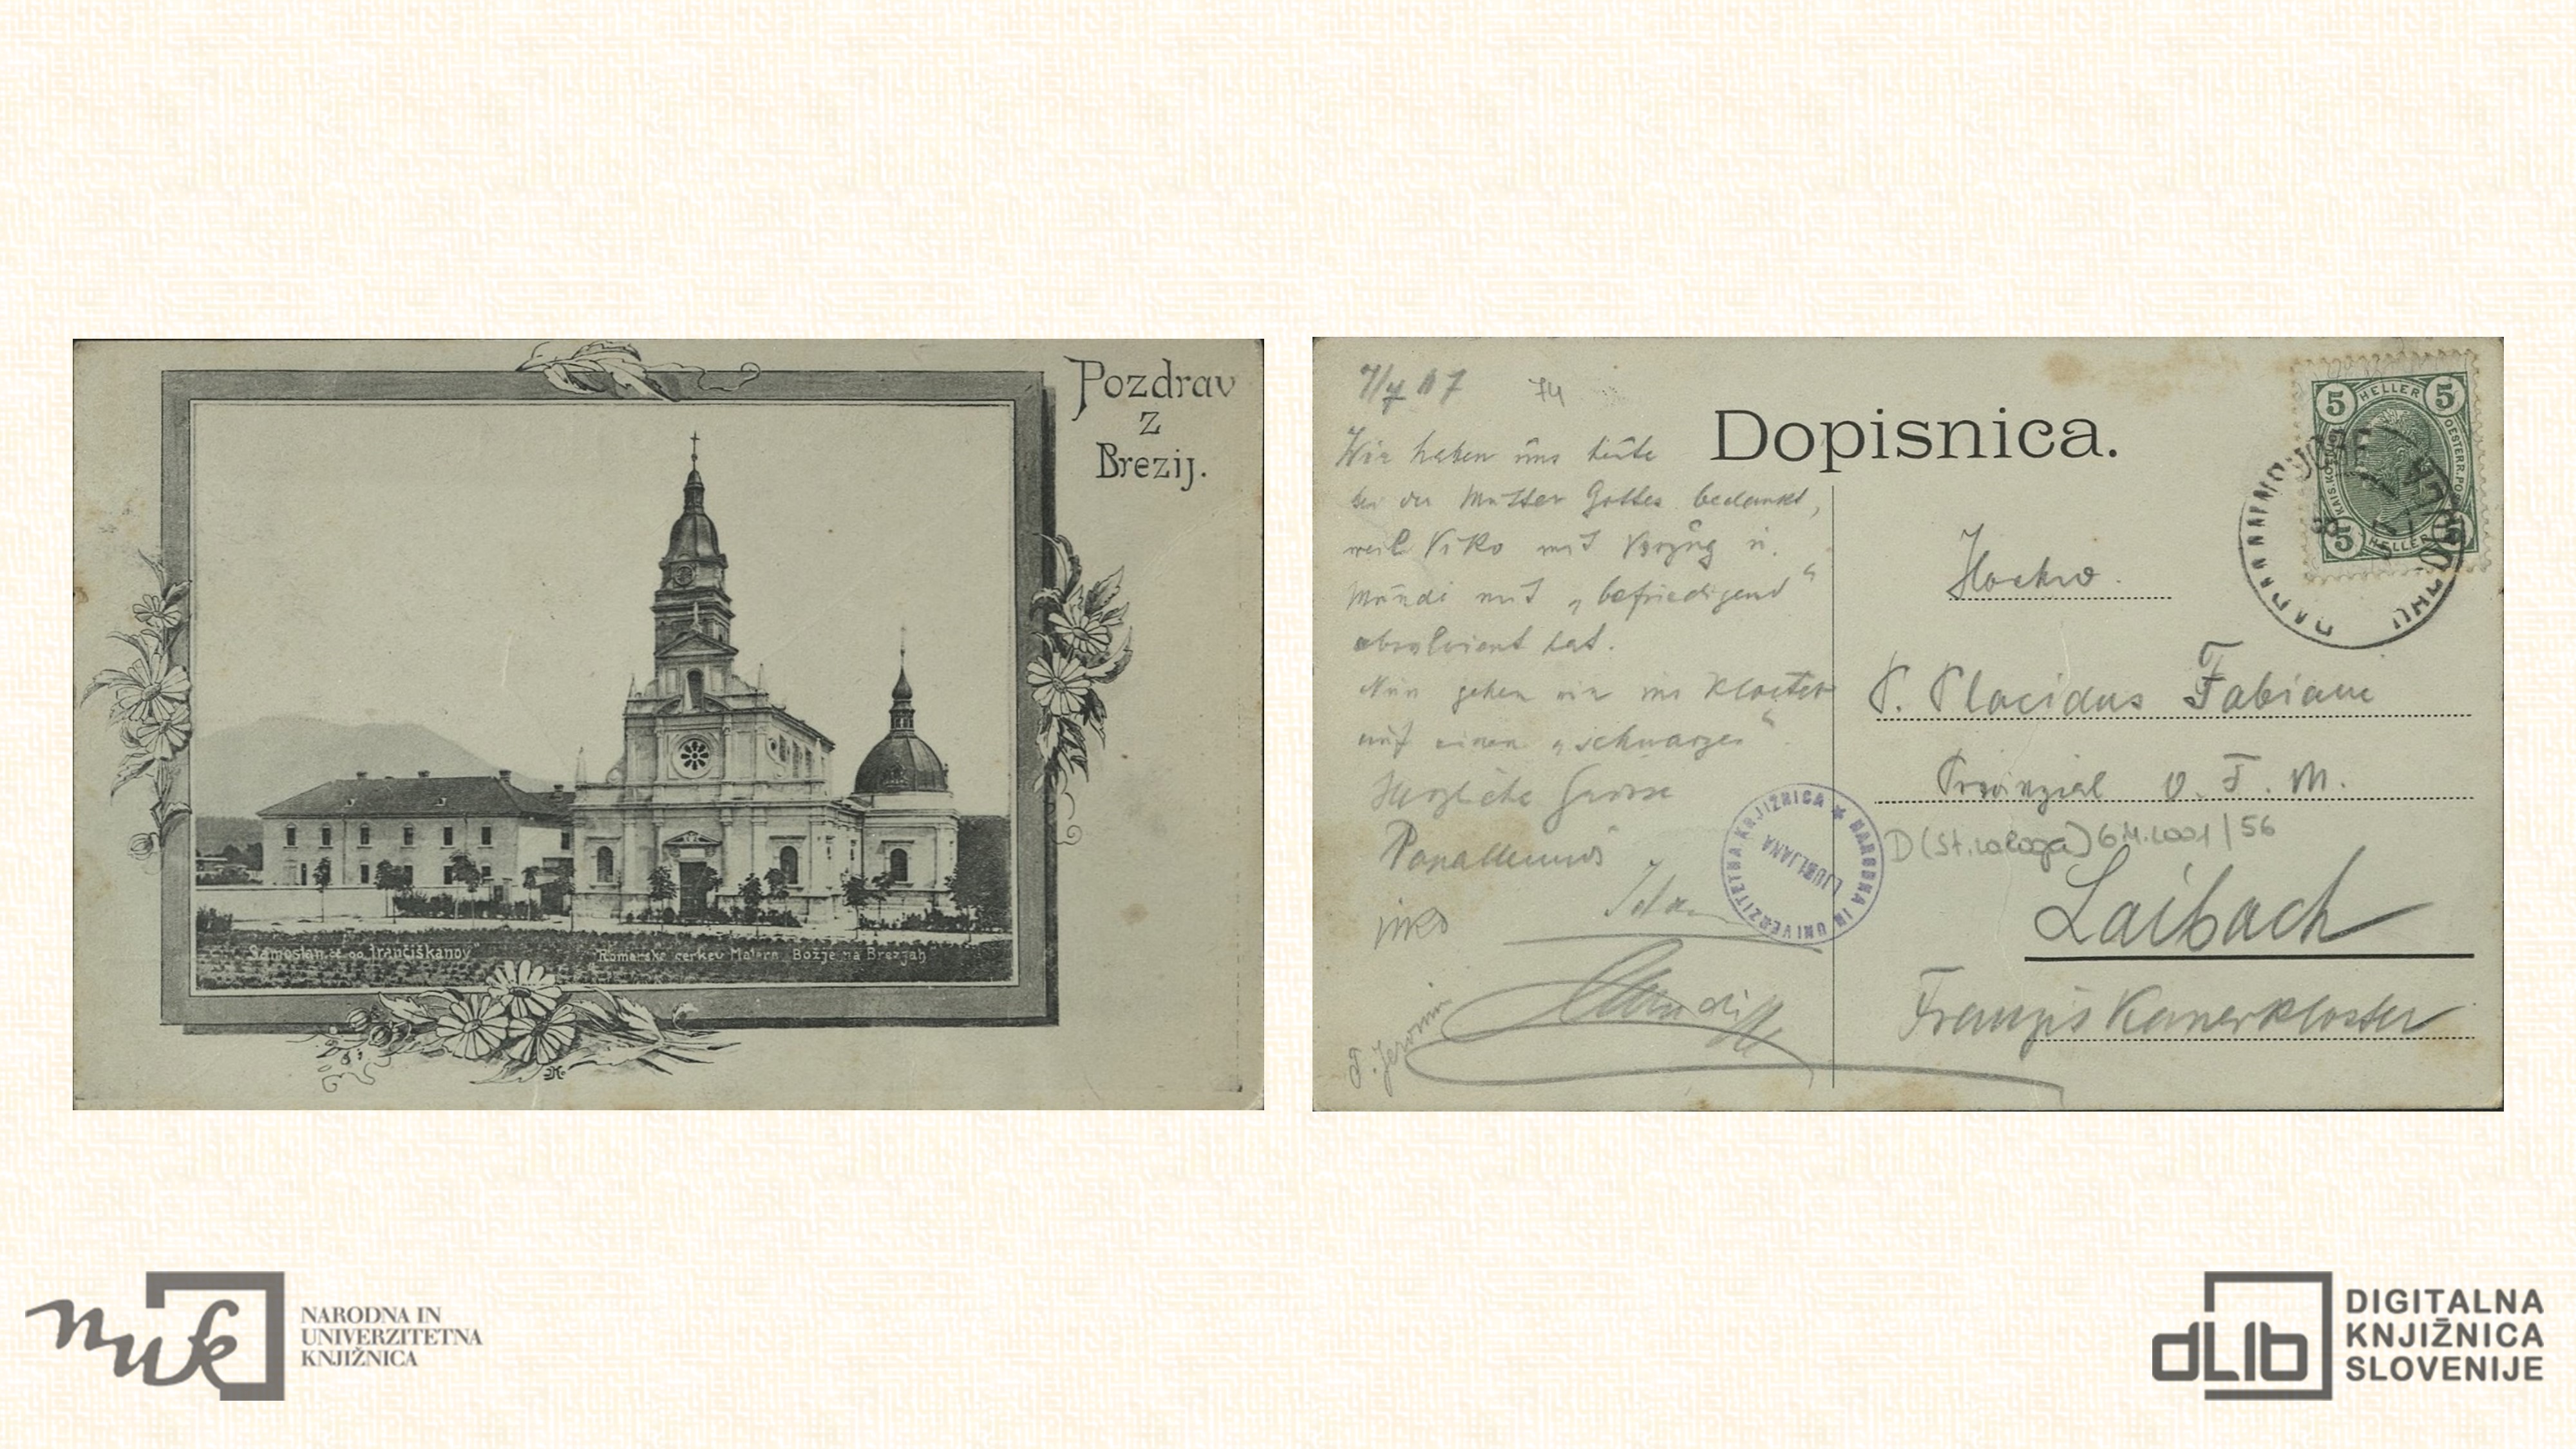 Pozdrav
z
Brezij.
Samostan čč. oo. frančiškanov
Romarska cerkev Matere Božje na Brezjah
7/7 07
74
Dopisnica.
Wir haben uns heute
bei der Mutter Gottes bedankt,
weil Viko mit Vorzug u.
Mundi mit „befriedigend“
absolviert hat.
Nun gehen wir ins Kloster
auf einen „schwarzen“
Herzliche Grüsse
Viko
P. Jeronim
5 HELLER 5
KAIS. KÖNIGL. OESTERR. POST
5 HELLER 5
Hochw.
P. Placidus Fabiani
Provinzial O. F. M.
D(st. zaloga) 6.11.2001/56
Laibach
Franziskanerkloster
NARODNA IN UNIVERZITETNA KNJIŽNICA
LJUBLJANA
nuk
NARODNA IN
UNIVERZITETNA
KNJIŽNICA
dLib
DIGITALNA
KNJIŽNICA
SLOVENIJE